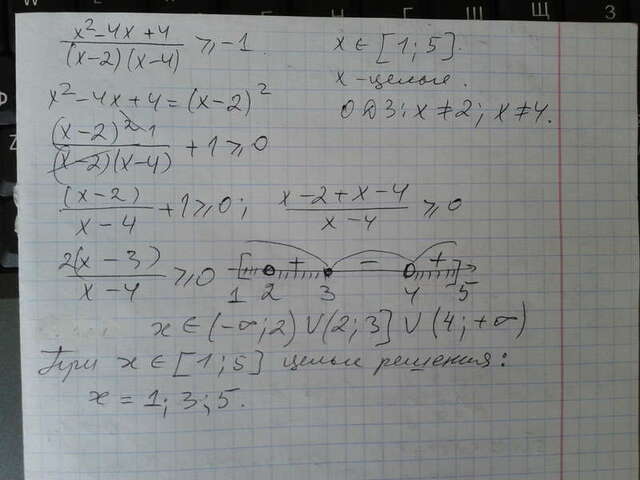 x² - 4x + 4 / (x-2)(x-4) ≥ -1.
x ∈ [1; 5].
x - целые.
x² - 4x + 4 = (x-2)²
ОДЗ: x ≠ 2; x ≠ 4.
(x-2)² 1 / (x-2)(x-4) + 1 ≥ 0
(x-2) / x-4 + 1 ≥ 0; x-2+x-4 / x-4 ≥ 0
2(x-3) / x-4 ≥ 0
+ - +
1 2 3 4 5
x ∈ (-∞; 2) ∪ (2; 3] ∪ (4; +∞)
При x ∈ [1; 5] целые решения:
x = 1; 3; 5.
Ш Щ З